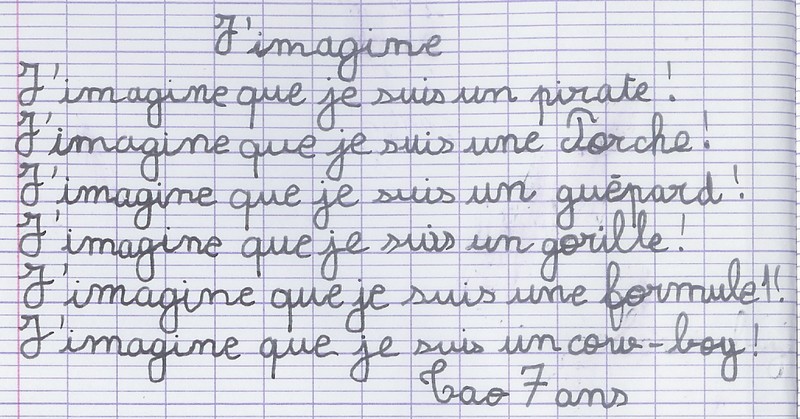 J'imagine
J'imagine que je suis un pirate !
J'imagine que je suis une Torche !
J'imagine que je suis un guépard !
J'imagine que je suis un gorille !
J'imagine que je suis une formule 1 !
J'imagine que je suis un cow-boy !
Tao 7 ans